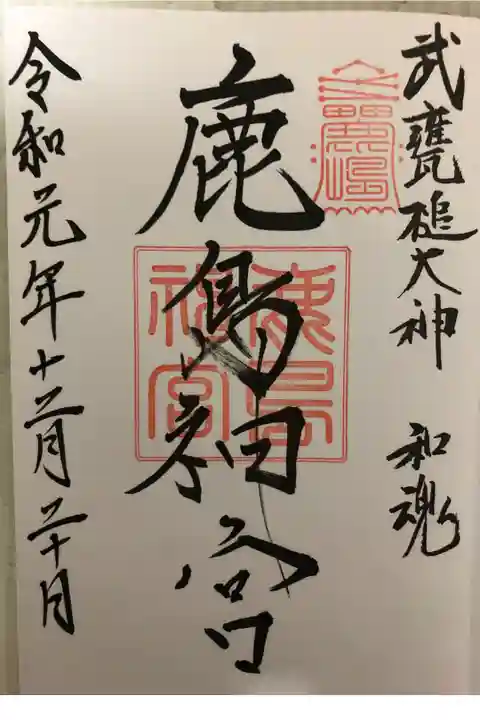 武甕槌大神 和魂
鹿島神宮
鹿島
神宮
令和元年十二月二十日